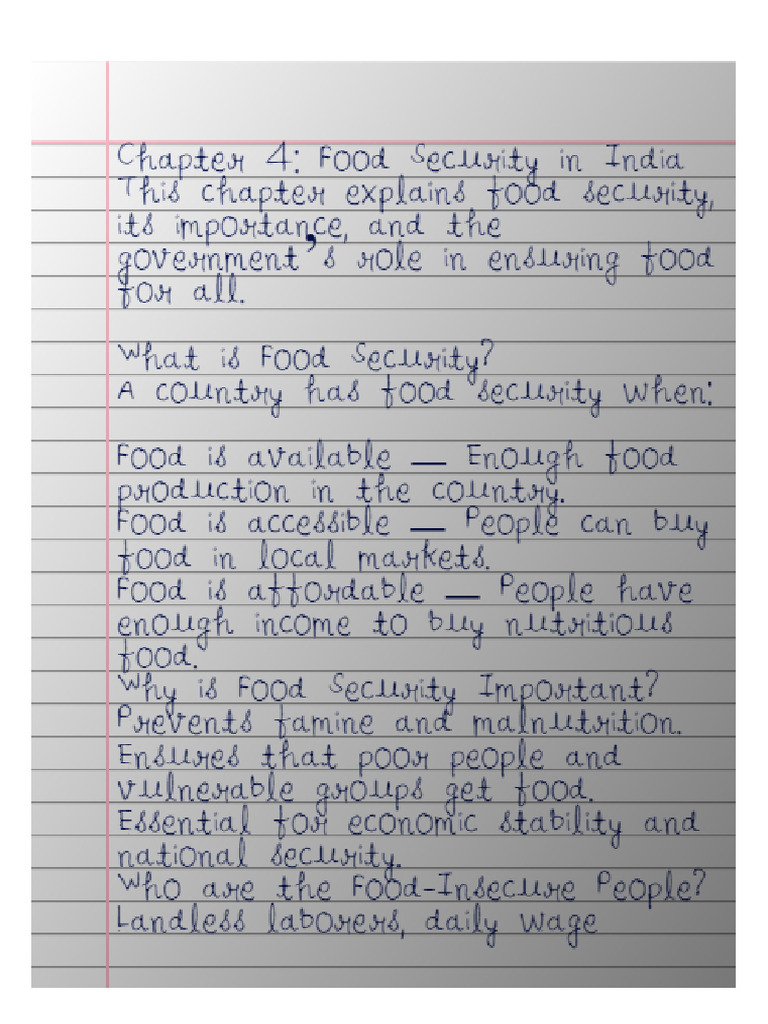 Chapter 4: Food Security in India
This chapter explains food security,
its importance, and the
government's role in ensuring food
for all.
What is Food Security?
A country has food security when:
Food is available — Enough food
production in the country.
Food is accessible — People can buy
food in local markets.
Food is affordable — People have
enough income to buy nutritious
food.
Why is Food Security Important?
Prevents famine and malnutrition.
Ensures that poor people and
vulnerable groups get food.
Essential for economic stability and
national security.
Who are the Food-Insecure People?
Landless laborers, daily wage